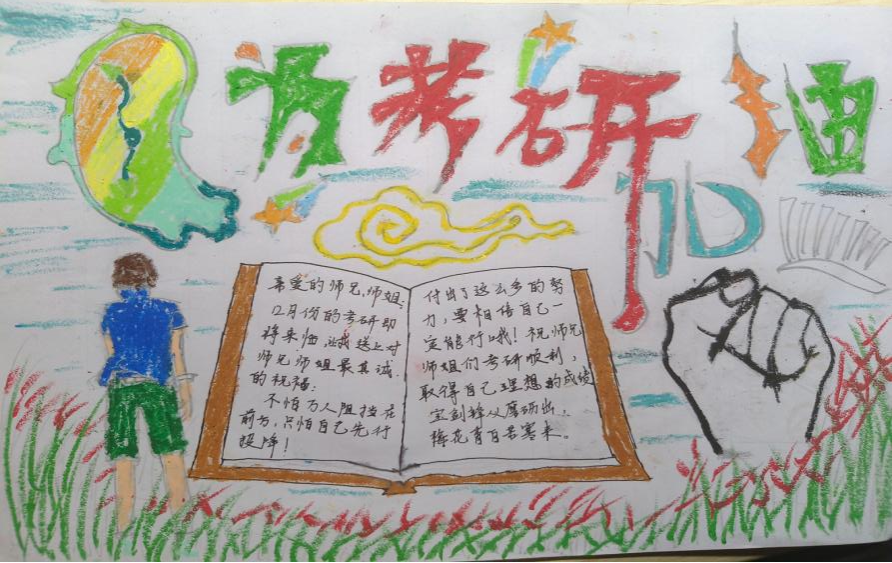 为考研加油
亲爱的师兄,师姐:
12月份的考研即
将来临,让我送上对
师兄师姐最真诚
的祝福:
不怕万人阻挡在
前方,只怕自己先行
投降!
付出了这么多的努
力,要相信自己一
定能行哦!祝师兄
师姐们考研顺利,
取得自己理想的成绩
宝剑锋从磨砺出,
梅花香自苦寒来。